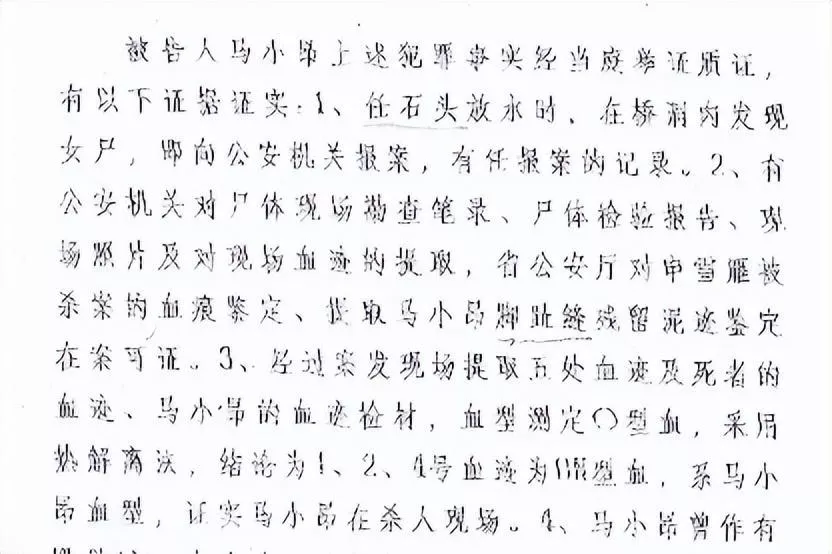 被告人马小昂上述犯罪事实经当庭举证质证，
有以下证据证实：1、任石头放水时、在桥洞内发现
女尸，即向公安机关报案，有任报案的记录。2、有
公安机关对尸体现场勘查笔录、尸体检验报告、现
场照片及对现场血迹的提取，省公安厅对申雪雁被
杀案的血痕鉴定、提取马小昂脚趾缝残留泥迹鉴定
在案可证。3、经过案发现场提取五处血迹及死者的
血迹、马小昂的血迹检材，血型测定O型血，采用
热解离法，结论为1、2、4号血迹为 型血，系马小
昂血型，证实马小昂在杀人现场。4、马小昂曾作有